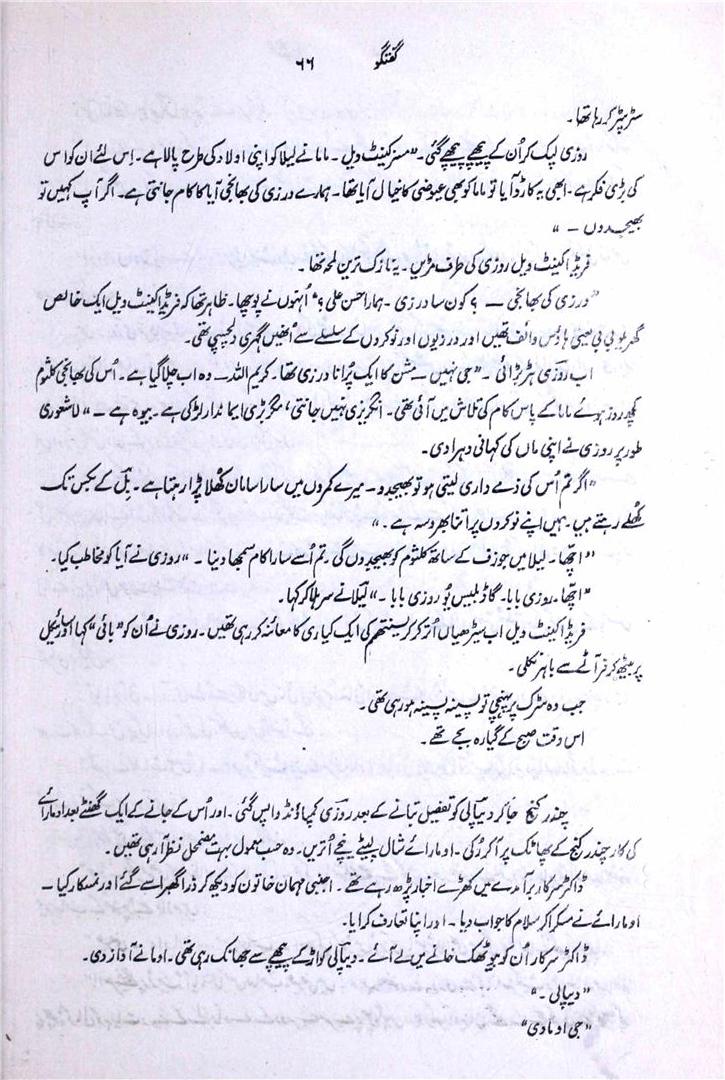 گفتگو ۶۶
سٹر پٹر کر رہا تھا۔
روزی لپک کر اُن کے پیچھے پیچھے گئی۔ ”مسز کینٹ ویل۔ ماما نے لیلا کو اپنی اولاد کی طرح پالا ہے۔ اِس لئے ان کو اس
کی بڑی فکر ہے۔ ابھی یہ کارڈ آیا تو ماما کو بھی عیوضی کا خیال آیا تھا۔ ہمارے درزی کی بھانجی آیا کا کام جانتی ہے۔ اگر آپ کہیں تو
بھیجدوں — “
فریڈا کینٹ ویل روزی کی طرف مڑیں۔ یہ نازک ترین لمحہ تھا۔
”درزی کی بھانجی — ؟ کون سا درزی۔ ہمارا حسن علی؟“ اُنہوں نے پوچھا۔ ظاہر تھا کہ فریڈا کینٹ ویل ایک خالص
گھریلو بی بی یعنی ہاؤس وائف تھیں اور درزیوں اور نوکروں کے سلسلے سے اُنھیں گہری دلچسپی تھی۔
اب روزی ہڑبڑائی۔ ”جی نہیں — مشن کا ایک پُرانا درزی تھا۔ کریم اللہ — وہ اب چلا گیا ہے۔ اُس کی بھانجی کلثوم
کچھ روز ہوئے ماما کے پاس کام کی تلاش میں آئی تھی۔ انگریزی نہیں جانتی، مگر بڑی ایماندار لڑکی ہے۔ بیوہ ہے — “ لاشعوری
طور پر روزی نے اپنی ماں کی کہانی دہرا دی۔
”اگر تم اُس کی ذمے داری لیتی ہو تو بھیجدو۔ میرے کمروں میں سارا سامان کُھلا پڑا رہتا ہے۔ بِل کے بکس تک
کُھلے رہتے ہیں۔ ہمیں اپنے نوکروں پر اتنا بھروسہ ہے۔“
”اچھا۔ لیلا میں جوزف کے ساتھ کلثوم کو بھیجدوں گی۔ تم اُسے سارا کام سمجھا دینا۔“ روزی نے آیا کو مخاطب کیا۔
”اچھا۔ روزی بابا۔ گاڈ بلیس یُو روزی بابا۔“ لیلا نے سر ہلا کر کہا۔
فریڈا کینٹ ویل اب سیڑھیاں اُتر کر کریسنتھیم کی ایک کیاری کا معائنہ کر رہی تھیں۔ روزی نے اُن کو ”بائی“ کہا اور سائیکل
پر بیٹھ کر فرّاٹے سے باہر نکلی۔
جب وہ سڑک پر پہنچی تو پسینہ پسینہ ہو رہی تھی۔
اس وقت صبح کے گیارہ بجے تھے۔
چندر کنج جا کر دیپالی کو تفصیل بتانے کے بعد روزی کمپاؤنڈ واپس گئی۔ اور اُس کے جانے کے ایک گھنٹے بعد اوما رائے
کی کار چندر کنج کے پھاٹک پر آکر رُکی۔ اوما رائے شال لپیٹے نیچے اُتریں۔ وہ حسبِ معمول بہت مضمحل نظر آ رہی تھیں۔
ڈاکٹر سرکار برآمدے میں کھڑے اخبار پڑھ رہے تھے۔ اجنبی مہمان خاتون کو دیکھ کر ذرا گھبرا سے گئے اور نمسکار کیا۔
اوما رائے نے مسکرا کر سلام کا جواب دیا۔ اور اپنا تعارف کرایا۔
ڈاکٹر سرکار اُن کو بیٹھک خانے میں لے آئے۔ دیپالی کواڑ کے پیچھے سے جھانک رہی تھی۔ اوما نے آواز دی۔
”دیپالی۔“
”جی اوما دی“